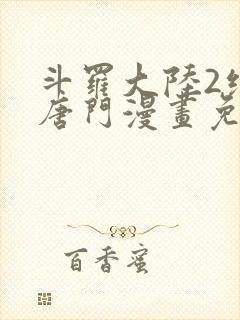 斗羅大陸2
唐門漫畫免
百香蜜